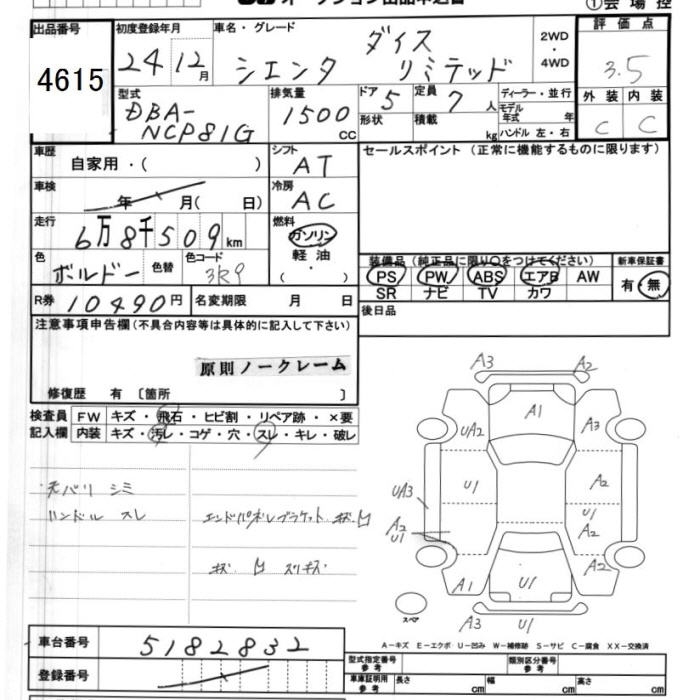 オークション出品申込書
①会場控
出品番号
4615
初度登録年月
24年12月
車名・グレード
ダイス
シエンタ リミテッド
2WD
・
4WD
評価点
3.5
外装 内装
C C
型式
DBA-
NCP81G
排気量
1500
CC
ドア
5
定員
7人
形状
積載
kg
ディーラー・並行
モデル
年式 年
ハンドル 左・右
車歴
自家用・( )
シフト
AT
セールスポイント (正常に機能するものに限ります)
車検
年 月( 日)
冷房
AC
走行
6万8千509km
燃料
ガソリン
軽油
( )
色
ボルドー
色替
色コード
3R9
装備品 (純正品に限り○をつけてください)
新車保証書
PS PW ABS エアB AW
SR ナビ TV カワ
有・無
R券 10490円
名変期限 月 日
後日品
注意事項申告欄(不具合内容等は具体的に記入して下さい)
原則ノークレーム
修復歴 有 〔箇所 〕
検査員
記入欄
FW キズ・飛石・ヒビ割・リペア跡・×要
内装 キズ・汚レ・コゲ・穴・スレ・キレ・破レ
天バリ シミ
ハンドル スレ
キズ 凹 スリキズ
A3
A2
A1
UA2
A3
U1
A2
UA3
U1
A2
A2
U1
A1
U1
A2
A3
U1
スペア
A－キズ E－エクボ U－凹み W－補修跡 S－サビ C－腐食 XX－交換済
車台番号 5182832
登録番号
型式指定番号
参考
類別区分番号
参考
車庫証明用
参考
長さ cm
幅 cm
高さ cm